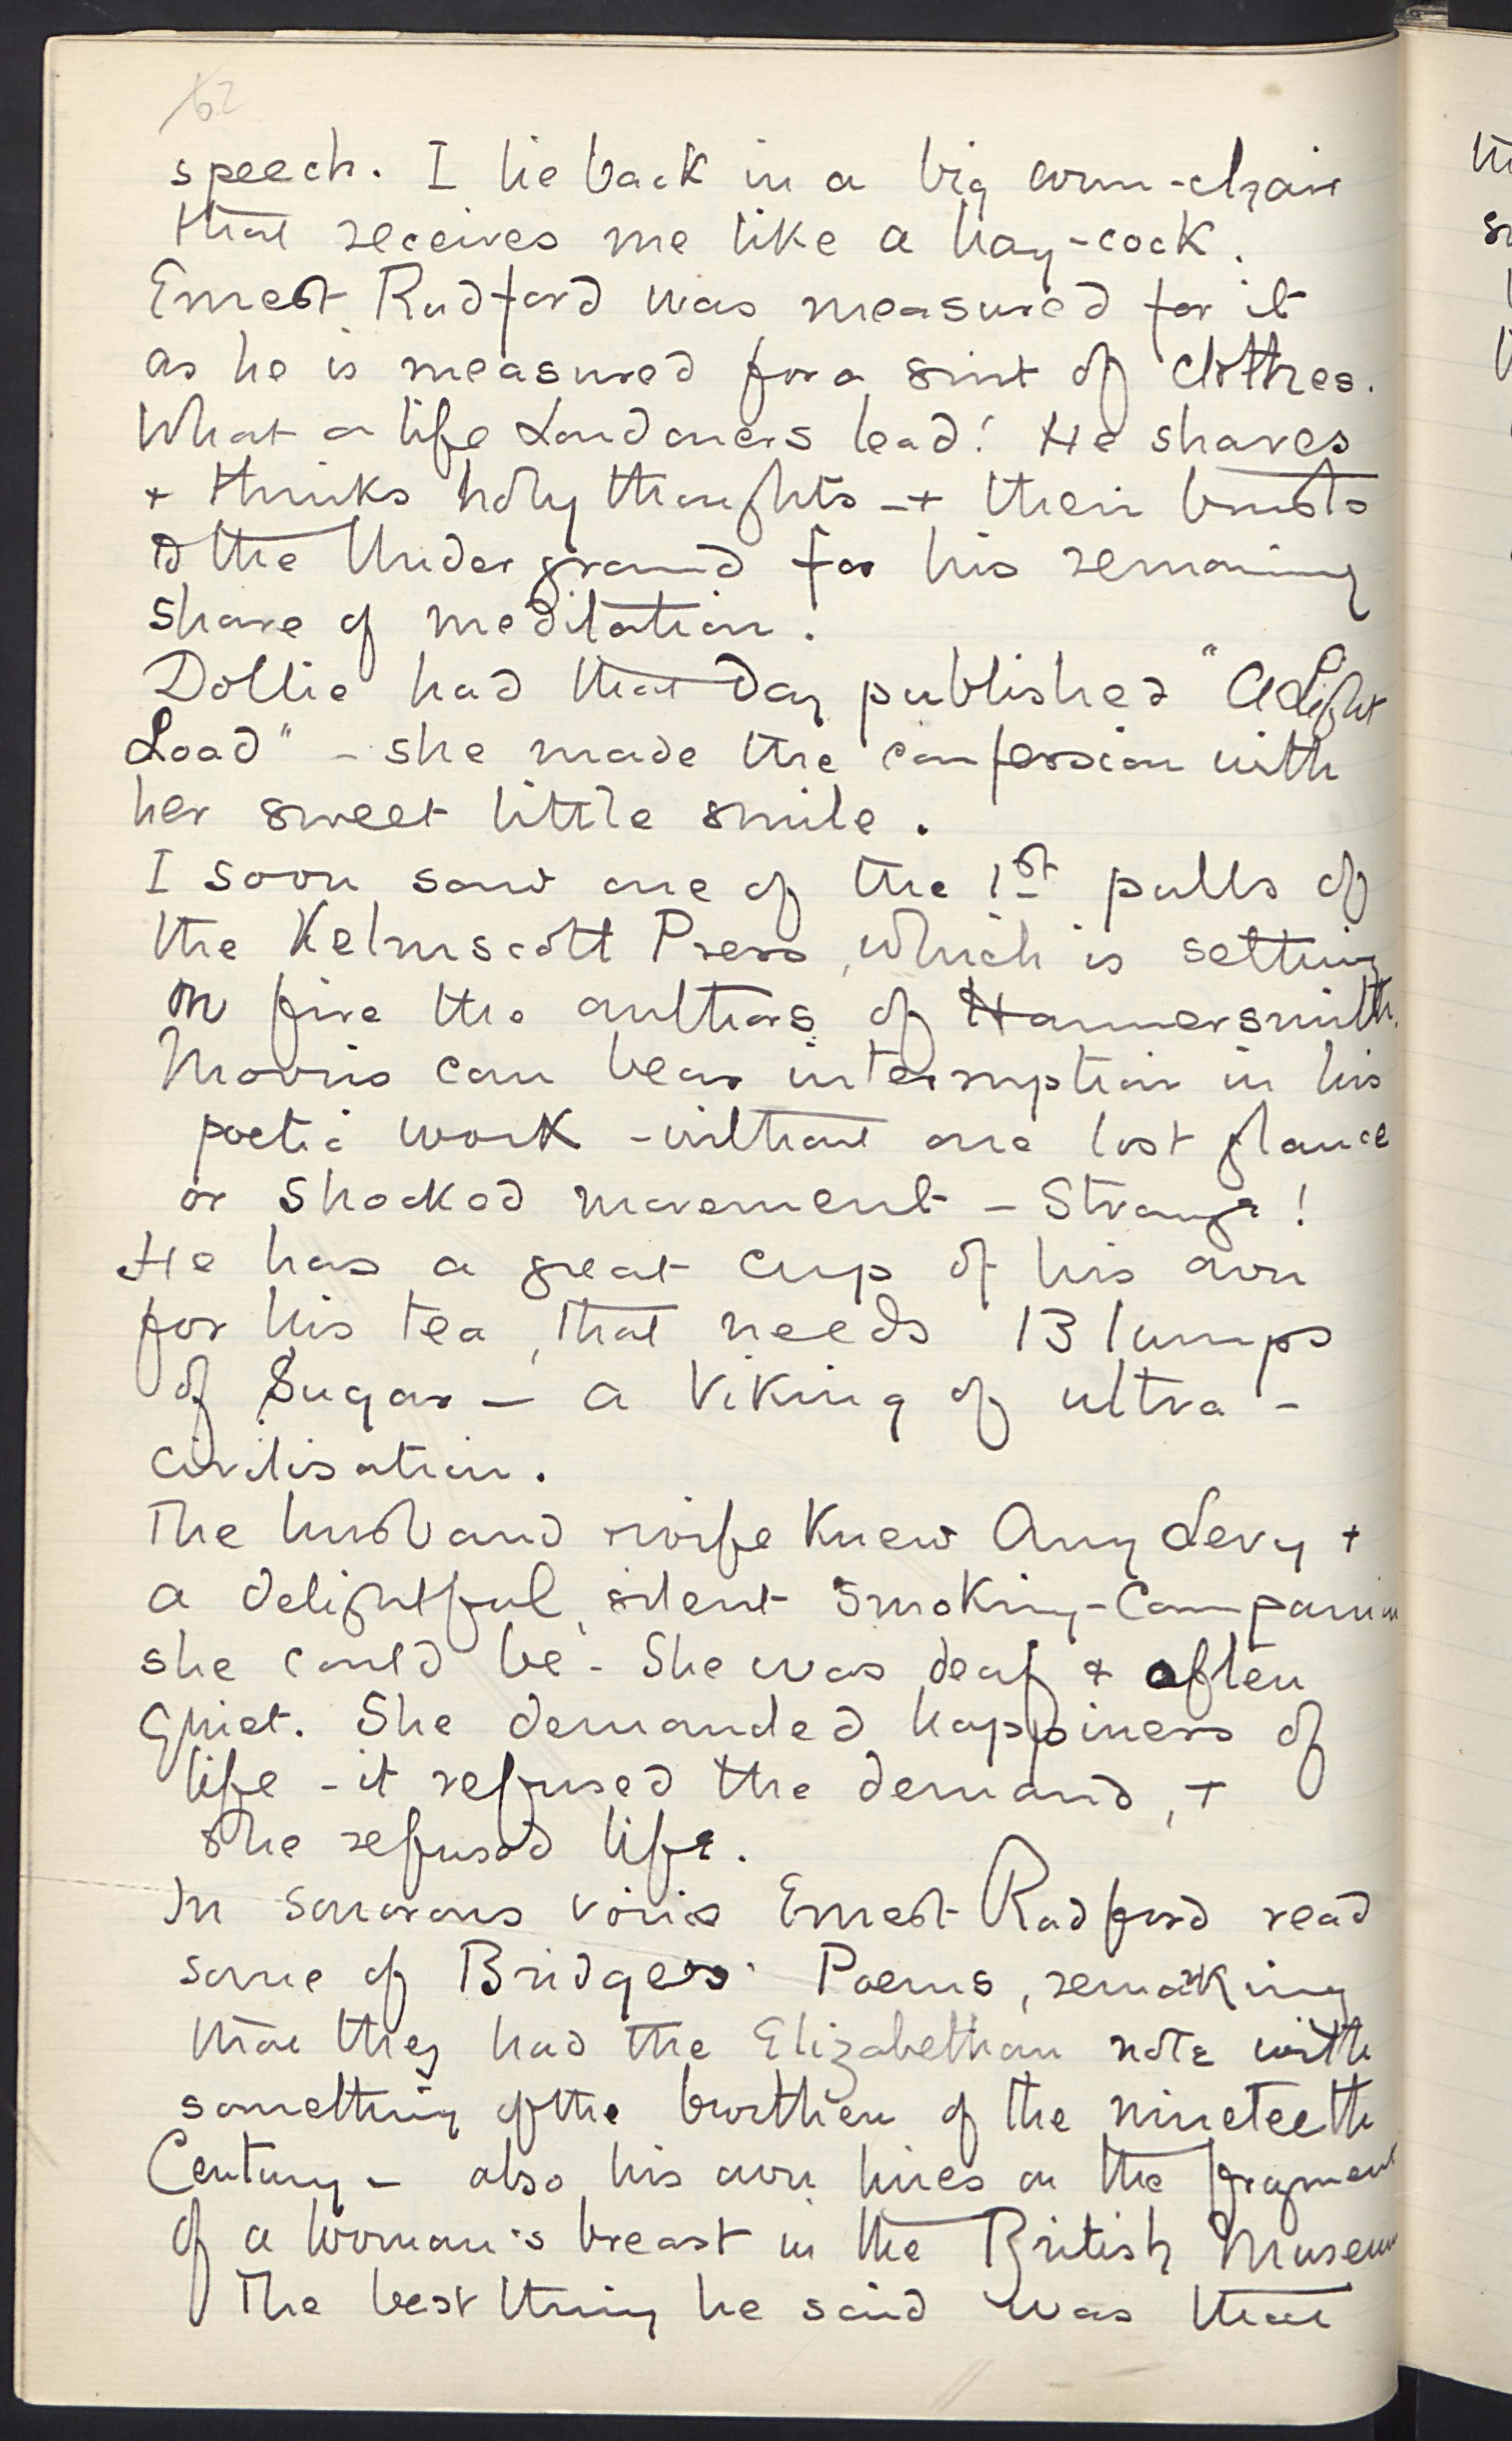 62
speech. I lie back in a big arm-chair
that receives me like a hay-cock.
Ernest Radford was measured for it
as he is measured for a suit of clothes.
What a life Londoners lead! He shaves
+ thinks holy thoughts - + then trusts
to the Underground for his remaining
share of meditation.
Dollie had that day published "A Light
Load" - she made the confession with
her sweet little smile.
I soon saw one of the 1st pulls of
the Kelmscott Press, which is setting
on fire the authors of Hammersmith.
Morris can bear interruption in his
poetic work - without one lost glance
or shocked movement - Strange!
He has a great cup of his own
for his tea, that needs 13 lumps
of Sugar - a Viking of ultra-
civilisation.
The husband + wife knew Amy Levy +
a delightful, silent smoking-Companion
she could be - She was deaf + often
quiet. She demanded happiness of
life - it refused the demand, +
she refused life.
In sonorous voice Ernest Radford read
some of Bridges' Poems, remarking
that they had the Elizabethan note with
something of the burthen of the nineteeth
Century - also his own lines on the fragment
of a woman's breast in the British Museum
The best thing he said was that